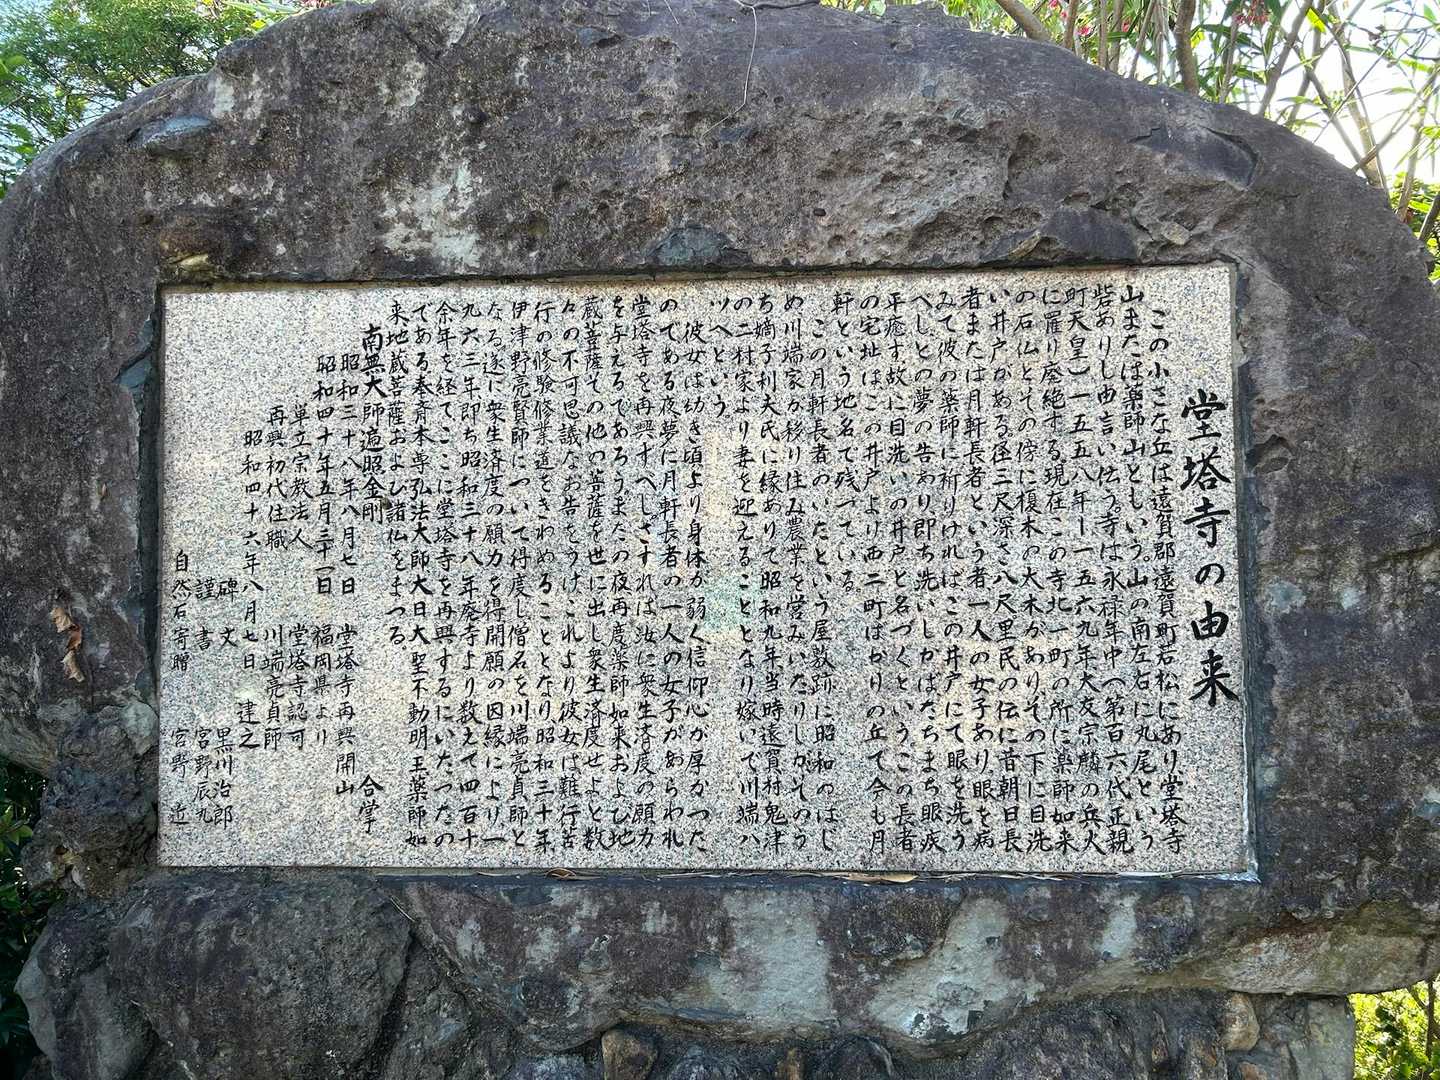 堂塔寺の由来
この小さな丘は遠賀郡遠賀町若松にあり堂塔寺
山または薬師山ともいう。山の南左右に丸尾という
砦ありし由言い伝う。寺は永禄年中（第百六代正親
町天皇）一五五八年ー一五六九年大友宗麟の兵火
に罹り廃絶する現在この寺北一町の所に薬師如来
の石仏とその傍に榎木の大木がありその下に目洗
い井戸がある。径三尺深さ八尺里民の伝に昔朝日長
者または月軒長者という者一人の女子あり、眼を病
みて彼の薬師に祈りければこの井戸にて眼を洗う
べしとの夢の告あり即ち洗いしかばたちまち眼疾
平癒す、故に目洗いの井戸と名づくという。この長者
の宅址はこの井戸より西二町ばかりの丘て今も月
軒という地名で残っている。
この月軒長者のいたという屋敷跡に昭和のはじ
め川端家が移り住み農業を営みいたりしがそのう
ち嫡子利夫氏に縁ありて昭和九年当時遠賀村鬼津
の二村家より妻を迎えることとなり嫁いで川端ハ
ツヘという。
彼女は幼き頃より身体が弱く信仰心が厚かった
のである夜夢に月軒長者の一人の女子があらわれ
堂塔寺を再興すべし、さすれば汝に衆生済度の願力
を与えるであろう。またの夜再度薬師如来および地
蔵菩薩その他の菩薩を世に出し衆生済度せよと数
々の不可思議なお告をうけ、これより彼女は難行苦
行の修験修業道をきわめることとなり昭和三十年
伊津野亮賢師について得度し僧名を川端亮貞師と
なる遂に衆生済度の願力を得開願の因縁により一
九六三年即ち昭和三十八年廃寺より数えて四百十
余年を経てここに堂塔寺を再興するにいたったの
である奉斉本尊弘法大師大日大聖不動明王薬師如
来地蔵菩薩および諸仏をまつる。
南無大師遍照金剛　合掌
昭和三十八年八月七日　堂塔寺再興開山
昭和四十年五月三十一日　福岡県より
単立宗教法人　堂塔寺認可
再興初代住職　川端亮貞師
昭和四十六年八月七日　建之
碑文　黒川治郎
謹書　宮野辰九
自然石寄贈　宮野　近